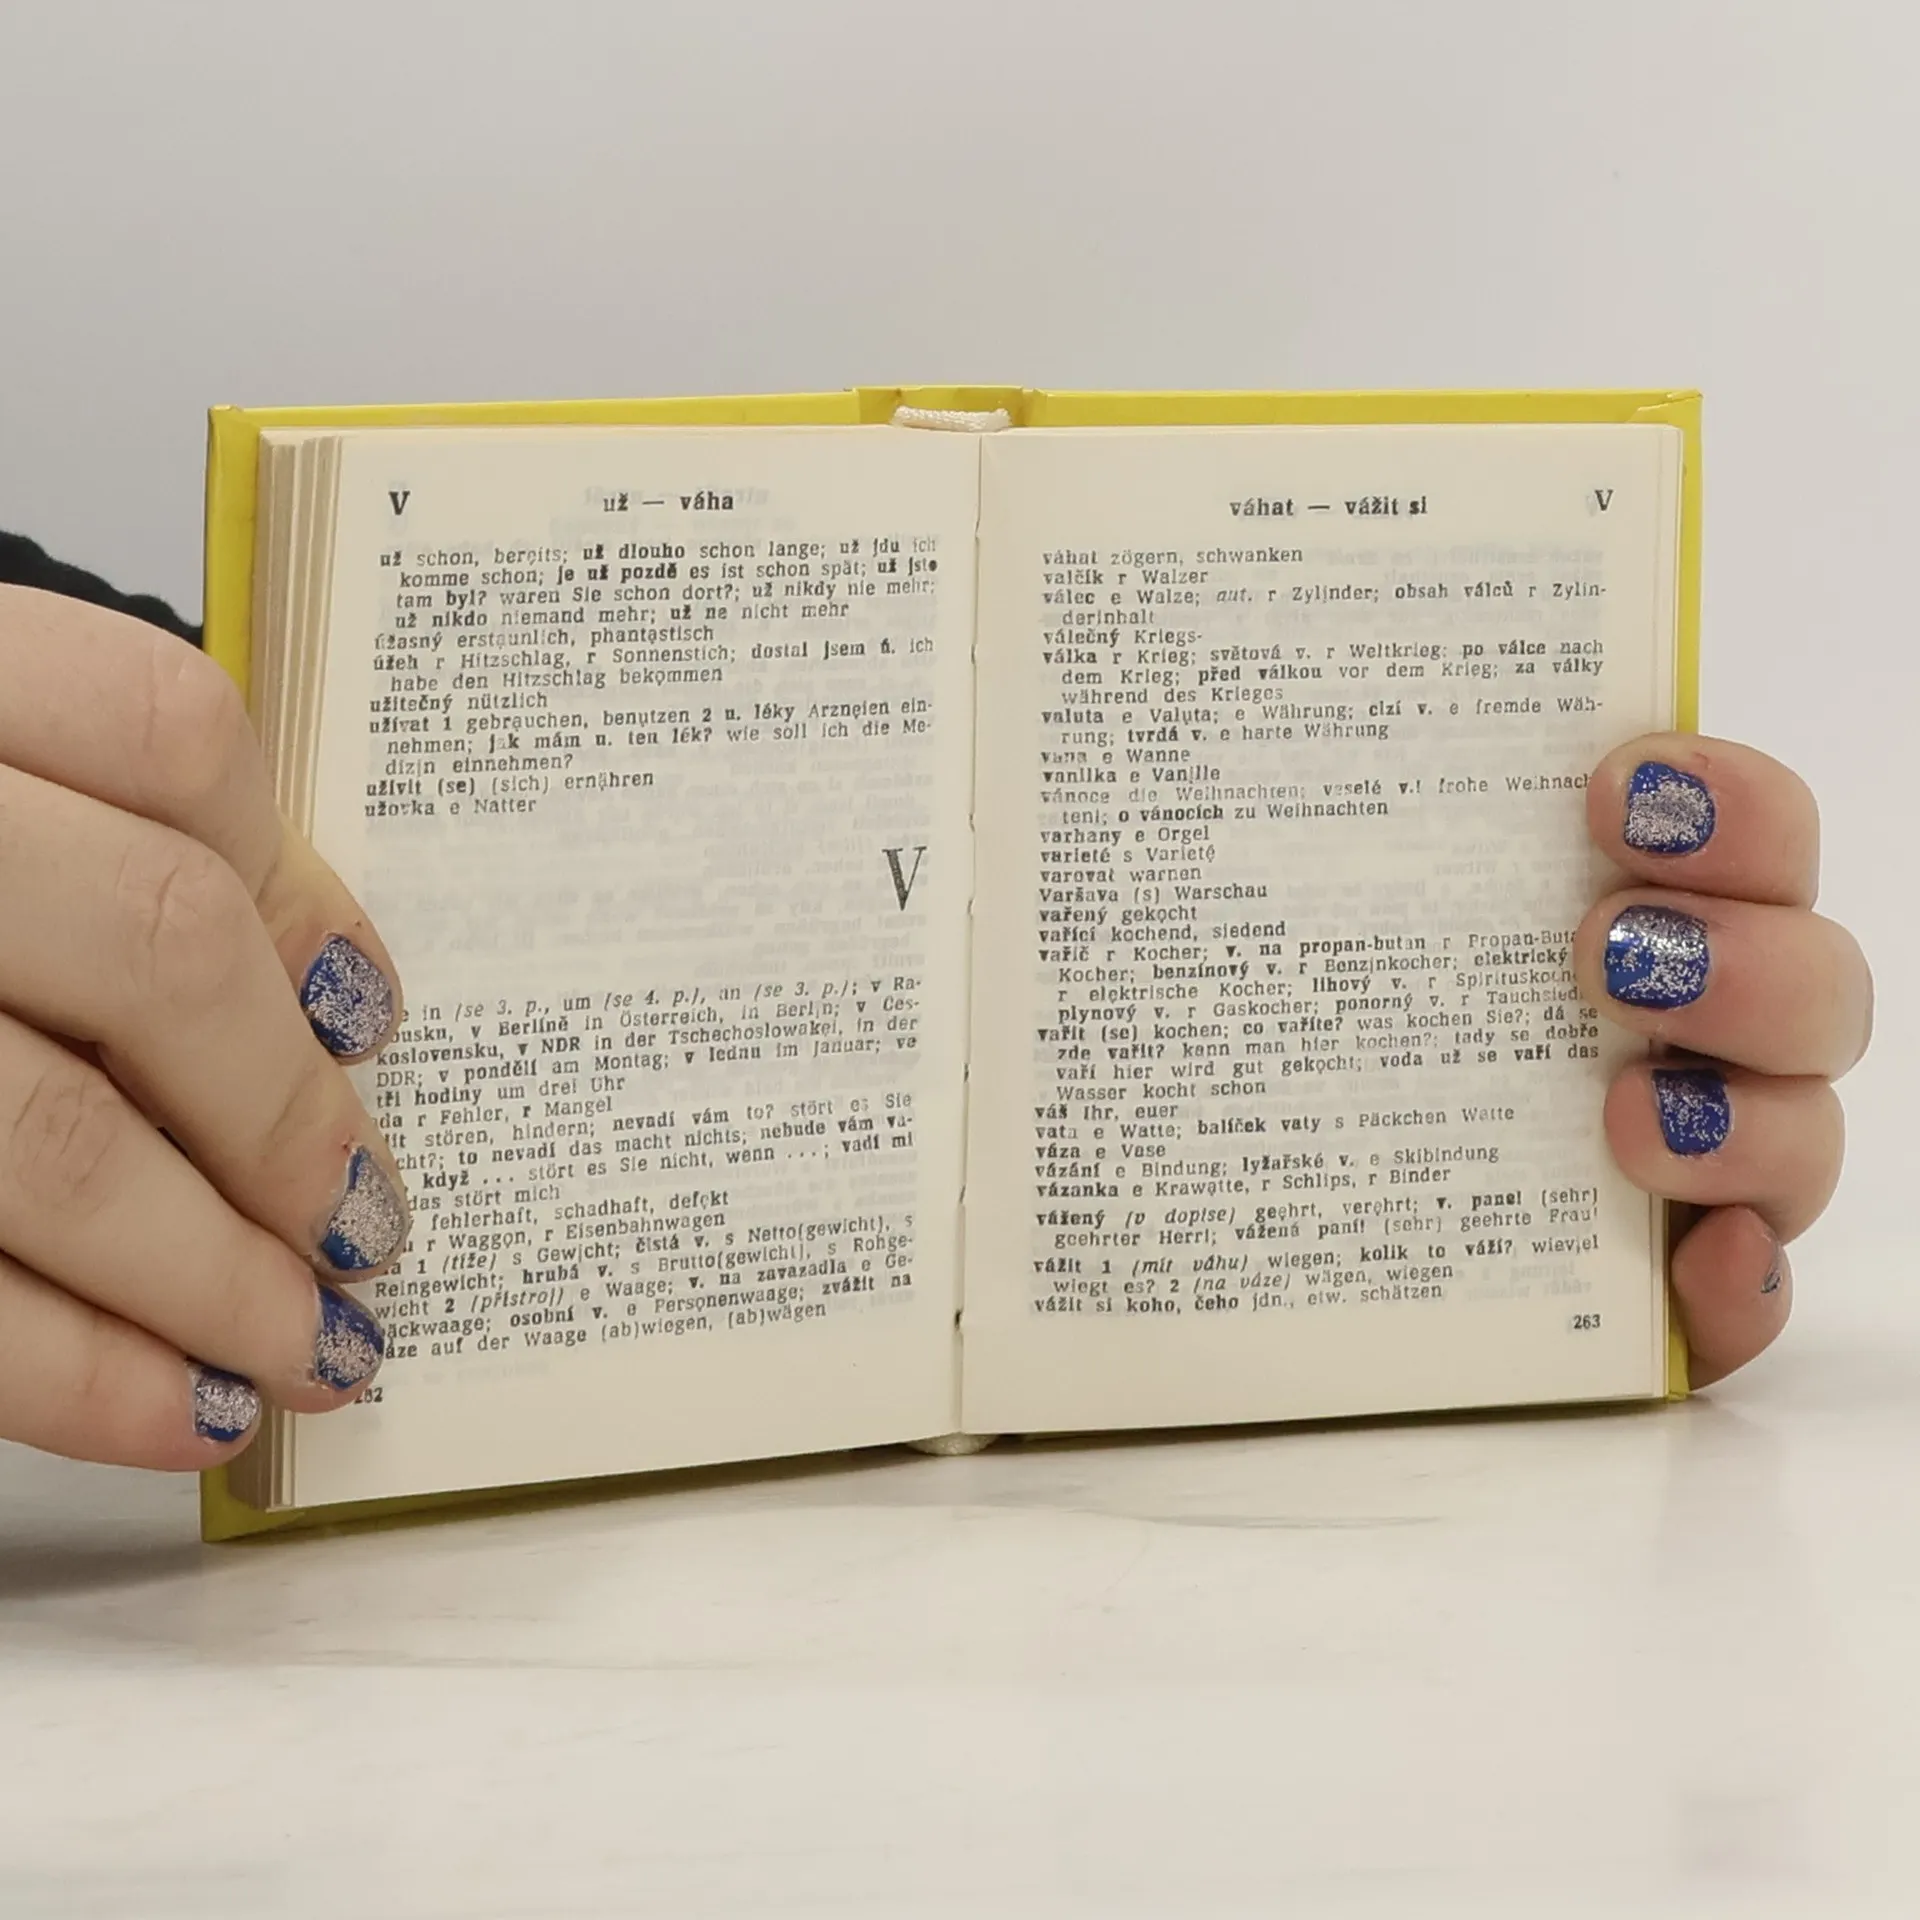 V už — váha
už schon, bereits; už dlouho schon lange; už jdu ich
komme schon; je už pozdě es ist schon spät; už jste
tam byl? waren Sie schon dort?; už nikdy nie mehr;
už nikdo niemand mehr; už ne nicht mehr
úžasný erstaunlich, phantastisch
úžeh r Hitzschlag, r Sonnenstich; dostal jsem ú. ich
habe den Hitzschlag bekommen
užitečný nützlich
užívat 1 gebrauchen, benutzen 2 u. léky Arzneien ein-
nehmen; jak mám u. ten lék? wie soll ich die Me-
dizin einnehmen?
uživit (se) (sich) ernähren
užovka e Natter
V
in (se 3. p., um (se 4. p.), an (se 3. p.); v Ra-
ousku, v Berlíně in Österreich, in Berlin; v Čes-
koslovensku, v NDR in der Tschechoslowakei, in der
DDR; v pondělí am Montag; v lednu im Januar; ve
tři hodiny um drei Uhr
da r Fehler, r Mangel
dit stören, hindern; nevadí vám to? stört es Sie
cht?; to nevadí das macht nichts; nebude vám va-
, když ... stört es Sie nicht, wenn ...; vadí mi
das stört mich
fehlerhaft, schadhaft, defekt
r Waggon, r Eisenbahnwagen
1 (tíže) s Gewicht; čistá v. s Netto(gewicht), s
Reingewicht; hrubá v. s Brutto(gewicht), s Rohge-
wicht 2 (přístroj) e Waage; v. na zavazadla e Ge-
päckwaage; osobní v. e Personenwaage; zvážit na
váze auf der Waage (ab)wiegen, (ab)wägen
váhat — vážit si V
váhat zögern, schwanken
valčík r Walzer
válec e Walze; aut. r Zylinder; obsah válců r Zylin-
derinhalt
válečný Kriegs-
válka r Krieg; světová v. r Weltkrieg; po válce nach
dem Krieg; před válkou vor dem Krieg; za války
während des Krieges
valuta e Valuta; e Währung; cizí v. e fremde Wäh-
rung; tvrdá v. e harte Währung
vana e Wanne
vanilka e Vanille
vánoce die Weihnachten; veselé v.! frohe Weihnach-
ten!; o vánocích zu Weihnachten
varhany e Orgel
varieté s Varieté
varovat warnen
Varšava (s) Warschau
vařený gekocht
vařící kochend, siedend
vařič r Kocher; v. na propan-butan r Propan-Buta
Kocher; benzínový v. r Benzinkocher; elektrický
r elektrische Kocher; lihový v. r Spirituskoche
plynový v. r Gaskocher; ponorný v. r Tauchsied
vařit (se) kochen; co vaříte? was kochen Sie?; dá se
zde vařit? kann man hier kochen?; tady se dobře
vaří hier wird gut gekocht; voda už se vaří das
Wasser kocht schon
váš Ihr, euer
vata e Watte; balíček vaty s Päckchen Watte
váza e Vase
vázání e Bindung; lyžařské v. e Skibindung
vázanka e Krawatte, r Schlips, r Binder
vážený (v dopise) geehrt, verehrt; v. pane! (sehr)
geehrter Herr!; vážená paní! (sehr) geehrte Frau!
vážit 1 (mít váhu) wiegen; kolik to váží? wieviel
wiegt es? 2 (na váze) wägen, wiegen
vážit si koho, čeho jdn., etw. schätzen
263